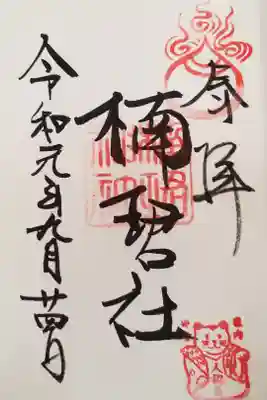 奉拝
楠珺社
令和元年九月廿四日